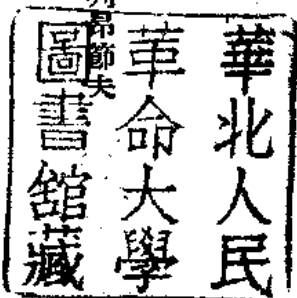 華北人民
革命大學
圖書舘藏
昂節夫